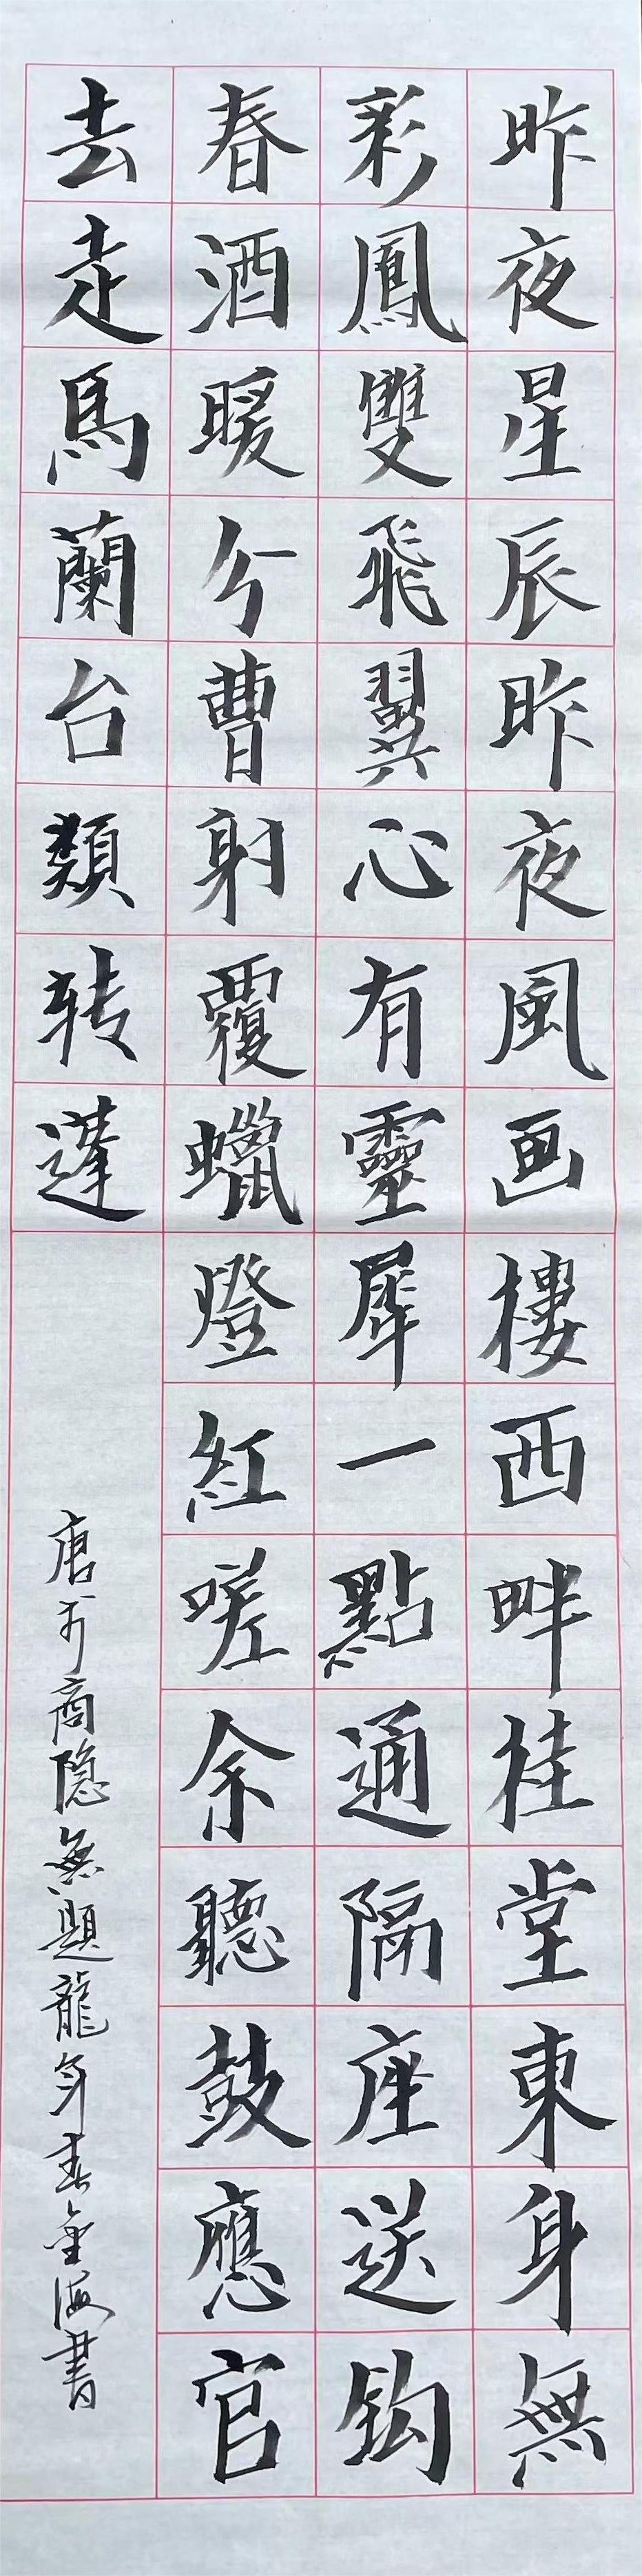 昨夜星辰昨夜風画樓西畔桂堂東身無
彩鳳雙飛翼心有靈犀一點通隔座送鈎
春酒暖分曹射覆蠟燈紅嗟余聽鼓應官
去走馬蘭台類转蓬
唐李商隐無題龍年春金海書